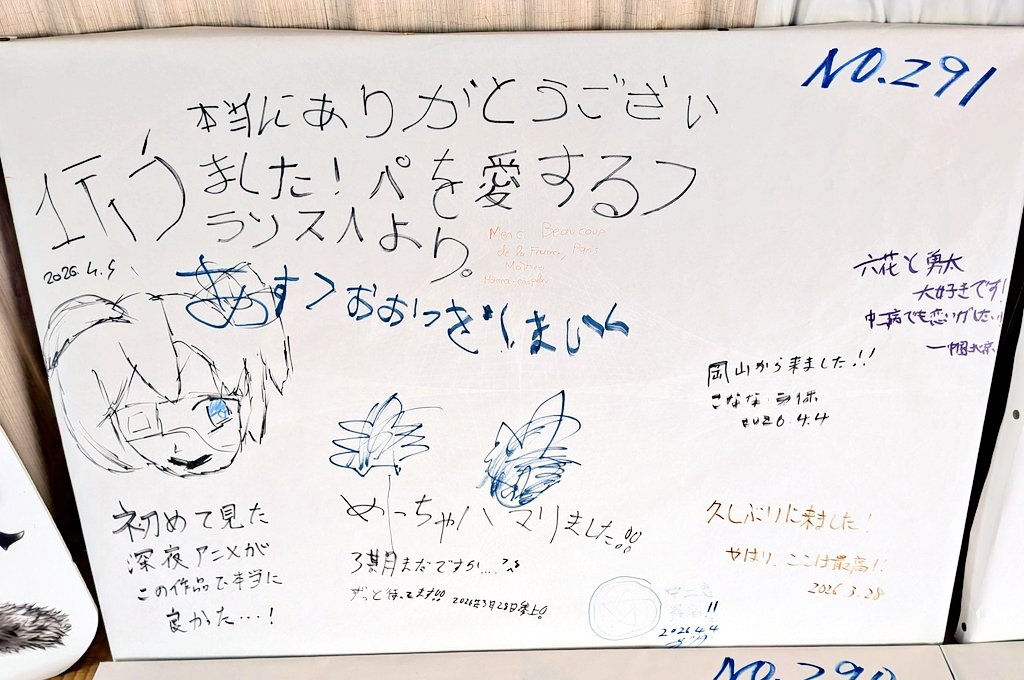 NO.291
本当にありがとうござい
ました！パを愛するフ
ランス人より。
2026.4.5
Merci Beaucoup
de la France, Paris
六花と勇太
大好きです！
中二病でも恋がしたい！
岡山から来ました!!
2026.4.4
初めて見た
深夜アニメが
この作品で本当に
良かた…！
めっちゃハマりました!!
3期月まだですか....?
ずっと待ってます!!
2026年3月28日参上!!
久しぶりに来ました！
やはり、ここは最高!!
2026.3.28
中二恋
最高!!
2026.4.4
NO.290